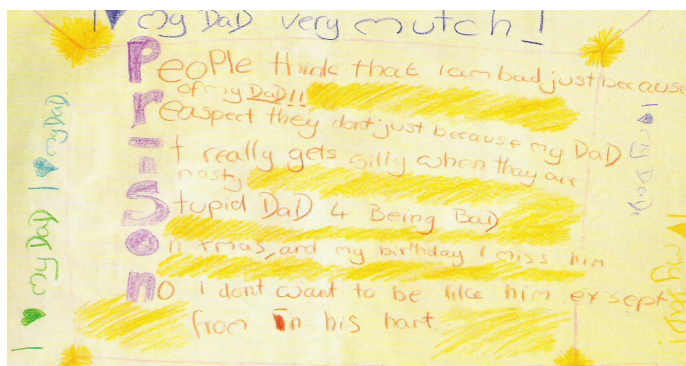 I ♥ my DaD very mutch!
PeoPle think that I am bad just because
of my DaD!!
reaspect they dont just because my DaD
iT really gets silly when thay are
nasty
Stupid DaD 4 Being BaD
on xmas, and my birthday I miss him
no I dont want to be like him exsept
from in his hart.
I ♥ my DaD I ♥ my DaD
I ♥ my DaD
I ♥ my DaD!